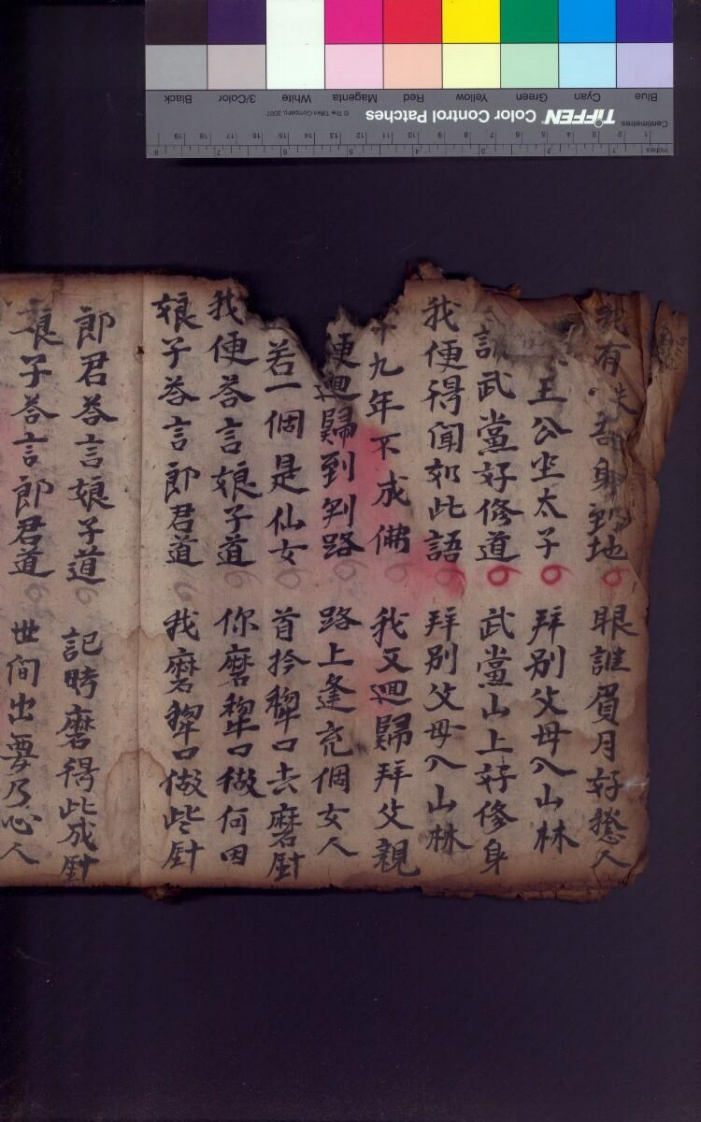 我有 身到地 眼誰眉月好愁人
王公坐太子 拜別父母入山林
武黨好修道 武黨山上好修身
我便得聞如此語 拜別父母入山林
十九年不成佛 我又迴歸拜父親
便迴歸到半路 路上逢克個女人
若一個是仙女 首拎犂口去磨針
我便答言娘子道 你磨犂口做何因
娘子答言郎君道 我磨犂口做些針
郎君答言娘子道 記時磨得此成針
娘子答言郎君道 世間出要乃心人
TIFFEN Color Control Patches
© The Tiffen Company, 2007
Centimetres
Inches
Blue Cyan Green Yellow Red Magenta White 3/Color Black